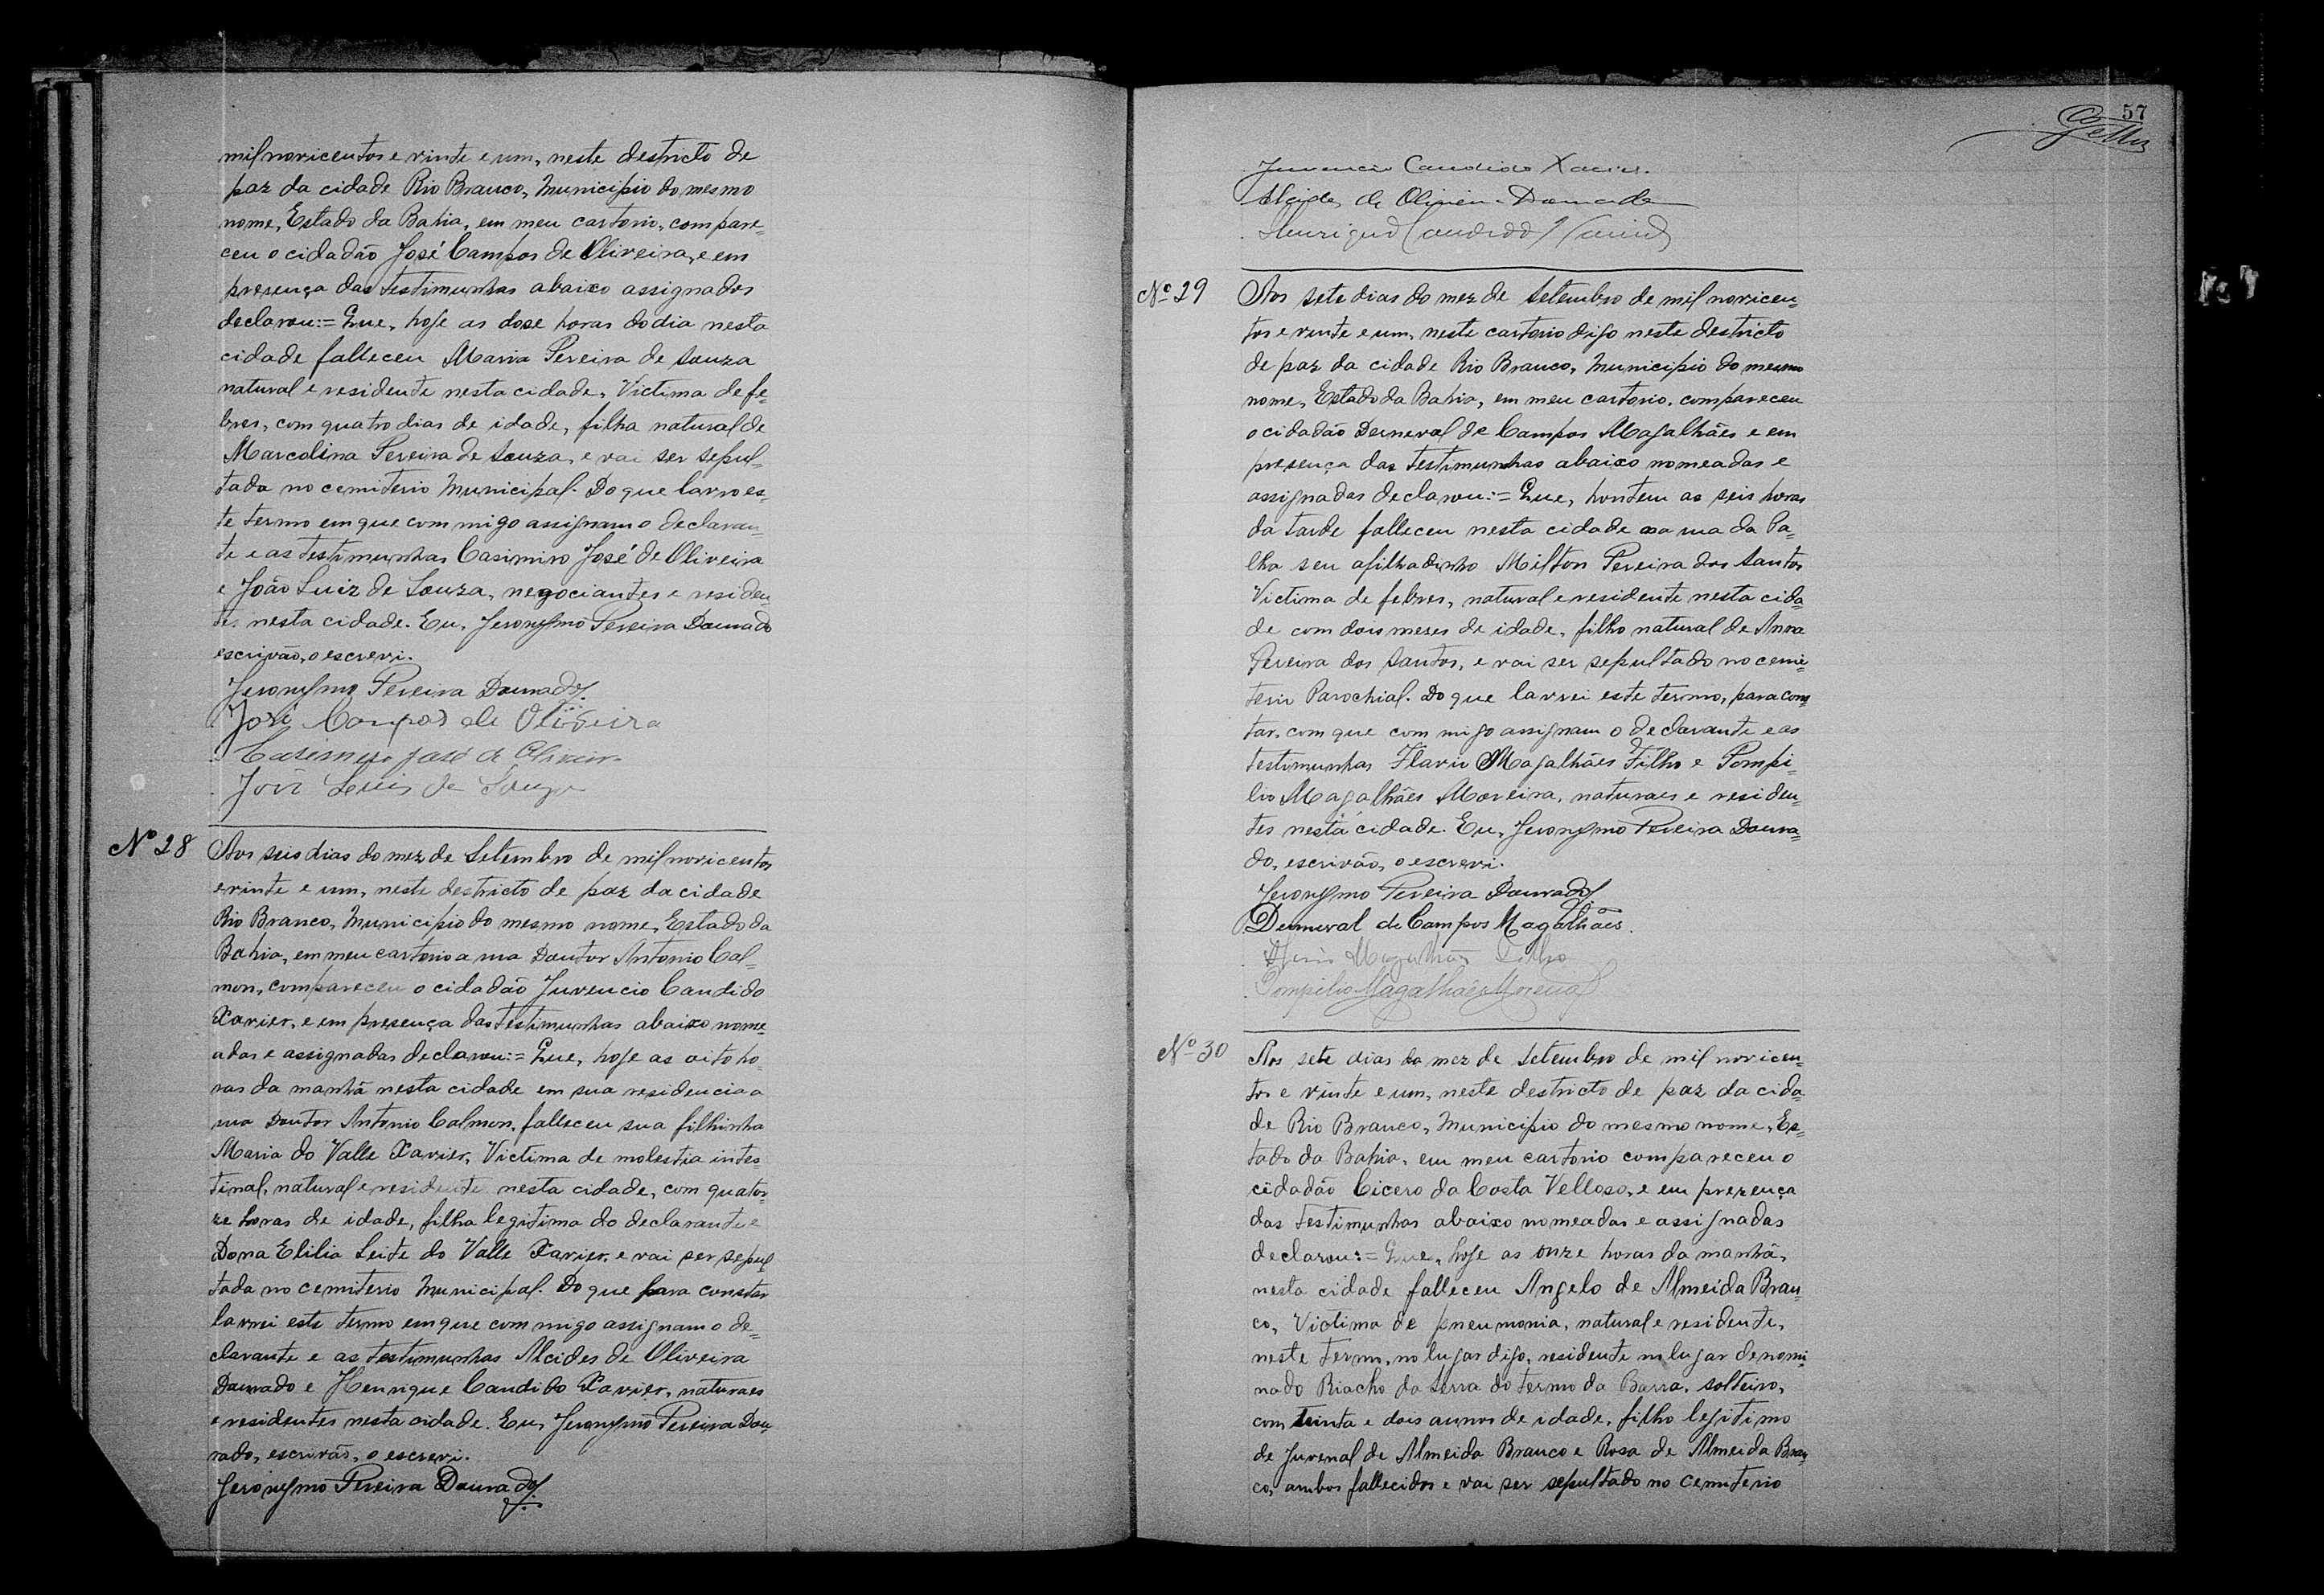 mil novicentos e vinte e um, neste destricto de
paz da cidade Rio Branco, Municipio do mesmo
nome, Estado da Bahia, em meu cartorio, compare=
ceu o cidadão José Campos de Oliveira, e em
presença das testimunhas abaixo assignados
declarou:= Que, hoje as dose horas do dia nesta
cidade falleceu Maria Pereira de Souza
natural e residente nesta cidade, Victima de fe=
bres, com quatro dias de idade, filha natural de
Marcolina Pereira de Souza, e vai ser sepul=
tada no cemiterio Municipal. Do que lavro es=
te termo em que commigo assignam o declaran=
te e as testimunhas Casimiro José de Oliveira
e João Luiz de Souza, negociantes e residen=
te. nesta cidade. Eu, Jeronymo Pereira Dourado
escrivão, o escrevi.
Jeronymo Pereira Dourado.
José Campos de Oliveira
Casimiro José de Oliveira
João Luis de Souza
Nº 28
Aos seis dias do mez de Setembro de mil novicentos
e vinte e um, neste destricto de paz da cidade
Rio Branco, Municipio do mesmo nome, Estado da
Bahia, em meu cartorio a rua Doutor Antonio Cal=
mon, compareceu o cidadão Juvencio Candido
Xavier, e em presença das testimunhas abaixo nome=
adas e assignadas declarou:= Que, hoje as oito ho=
ras da manhã nesta cidade em sua residencia a
rua Doutor Antonio Calmon, falleceu sua filhinha
Maria do Valle Xavier, Victima de molestia intes=
tinal, natural e residente nesta cidade, com quator=
ze horas de idade, filha legitima do declarante e
Dona Elilia Leite do Valle Xavier, e vai ser sepul
tada no cemiterio Municipal. Do que para constar
lavrei este termo em que commigo assignam o de=
clarante e as testimunhas Alcides de Oliveira
Dourado e Henrique Candido Xavier, naturaes
e residentes nesta cidade. Eu, Jeronymo Pereira Dou=
rado, escrivão, o escrevi.
Jeronymo Pereira Dourado.
57
Juvencio Candido Xavier.
Alcides de Oliveira Dourado
Henrique Candido Xavier
Nº 29
Aos sete dias do mez de Setembro de mil novicen=
tos e vinte e um, neste cartorio digo neste destricto
de paz da cidade Rio Branco, Municipio do mesmo
nome, Estado da Bahia, em meu cartorio, compareceu
o cidadão Derneval de Campos Magalhães e em
presença das testimunhas abaixo nomeadas e
assignadas declarou:= Que, hontem as seis horas
da tarde falleceu nesta cidade a rua da Pa=
lha seu afilhadinho Milton Pereira dos Santos
Victima de febres, natural e residente nesta cida=
de com dois mezes de idade, filho natural de Anna
Pereira dos Santos, e vai ser sepultado no cemi=
terio Parochial. Do que lavrei este termo, para cons
tar, com que com migo assignam o declarante e as
testimunhas Flavio Magalhães Filho e Pompi=
lio Magalhães Moreira, naturaes e residen=
tes nesta cidade. Eu, Jeronymo Pereira Doura=
do, escrivão, o escrevi.
Jeronymo Pereira Dourado.
Derneval de Campos Magalhães.
Flavio Magalhães Filho
Pompilio Magalhães Moreira
Nº 30
Aos sete dias do mez de Setembro de mil novicen=
tos e vinte e um, neste destricto de paz da cida=
de Rio Branco, Municipio do mesmo nome, Es=
tado da Bahia, em meu cartorio compareceu o
cidadão Cicero da Costa Velloso, e em prezença
das testimunhas abaixo nomeadas e assignadas
declarou:= Que, hoje as onze horas da manhã,
nesta cidade falleceu Angelo de Almeida Bran=
co, Victima de pneumonia, natural e residente,
neste termo, no lugar digo, residente no lugar denomi
nado Riacho da Serra do termo da Barra, solteiro,
com trinta e dois annos de idade, filho legitimo
de Juvenal de Almeida Branco e Rosa de Almeida Bran
co, ambos fallecidos e vai ser sepultado no Cemiterio